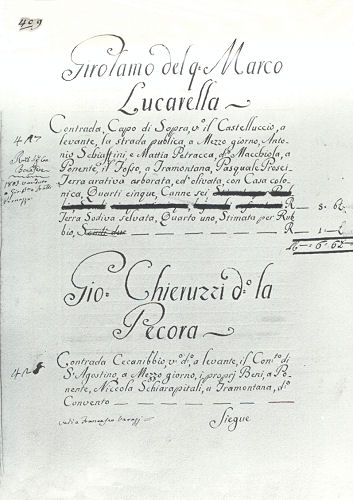 409
Girolamo del q: Marco
Lucarella
Contrada, Capo di Sopra, v:o il Castelluccio, a
levante, la strada publica, a Mezzo giorno, Anto-
nio Schiaffini e Mattia Petracca, d:o Macchiola, a
Ponente, il Fosso, a Tramontana, Pasquale Prosei
Terra arativa arborata, ed olivata, con Casa colo-
nica, Quarti cinque, Canne sei
R — 5 - 62
Terra Sodiva selvata, Quarto uno, Stimata per Rub-
bio, Scudi due — R — 1 -
R — 6 - 62
Gio: Chieruzzi d:o la
Pecora
Contrada Cecanibbio, v:o d:o, a levante, il Con:to di
S: Agostino, a Mezzo giorno, i proprj Beni, a Po-
nente, Niccola Schiarapitali, a Tramontana, d:o
Convento
Siegue